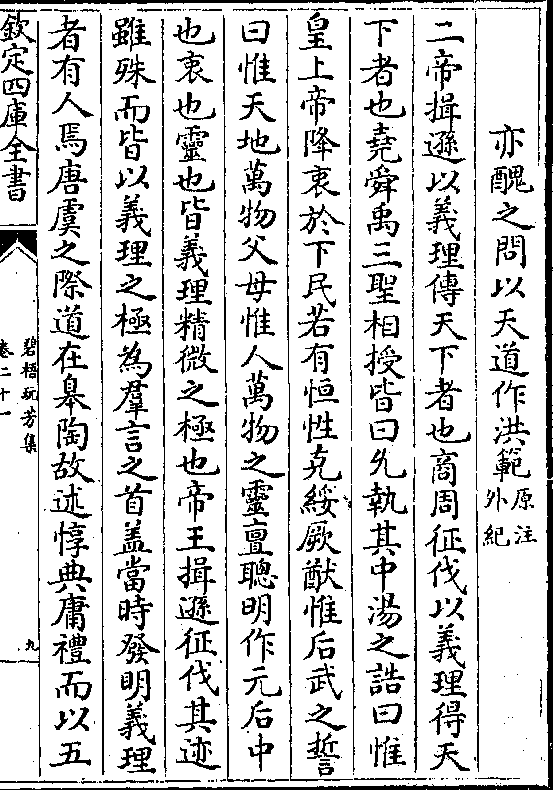 亦醜之問以天道作洪範原注外紀
二帝揖遜以義理傳天下者也商周征伐以義理得天
下者也堯舜禹三聖相授皆曰允執其中湯之誥曰惟
皇上帝降衷於下民若有恒性克綏厥猷惟后武之誓
曰惟天地萬物父母惟人萬物之靈亶聰明作元后中
也衷也靈也皆義理精微之極也帝王揖遜征伐其迹
雖殊而皆以義理之極為羣言之首盖當時發明義理
者有人焉唐虞之際道在臯陶故述惇典庸禮而以五
欽定四庫全書
碧梧玩芳集
卷二十一
九